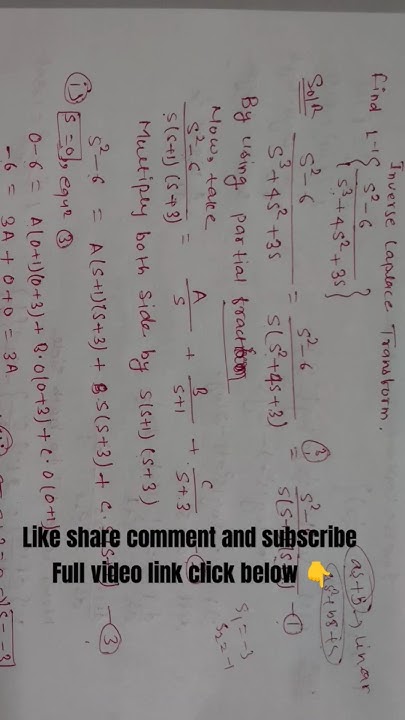 Inverse Laplace Transform.
Find L⁻¹{ (s²-6) / (s³+4s²+3s) }
Solⁿ (s²-6) / (s³+4s²+3s) = (s²-6) / s(s²+4s+3) = s²- / s(s+ — ①
By using partial fraction
Now, take
(s²-6) / s(s+1)(s+3) = A/s + B/(s+1) + C/(s+3)
Multiply both side by s(s+1)(s+3)
s²-6 = A(s+1)(s+3) + B·s(s+3) + C· — ③
① s=0, eqn ③
0-6 = A(0+1)(0+3) + B·0(0+3) + C·0(0+1)
-6 = 3A + 0+0 = 3A
s=-3
linear
s₁=-3
s₂=-1
Like share comment and subscribe
Full video link click below 👇